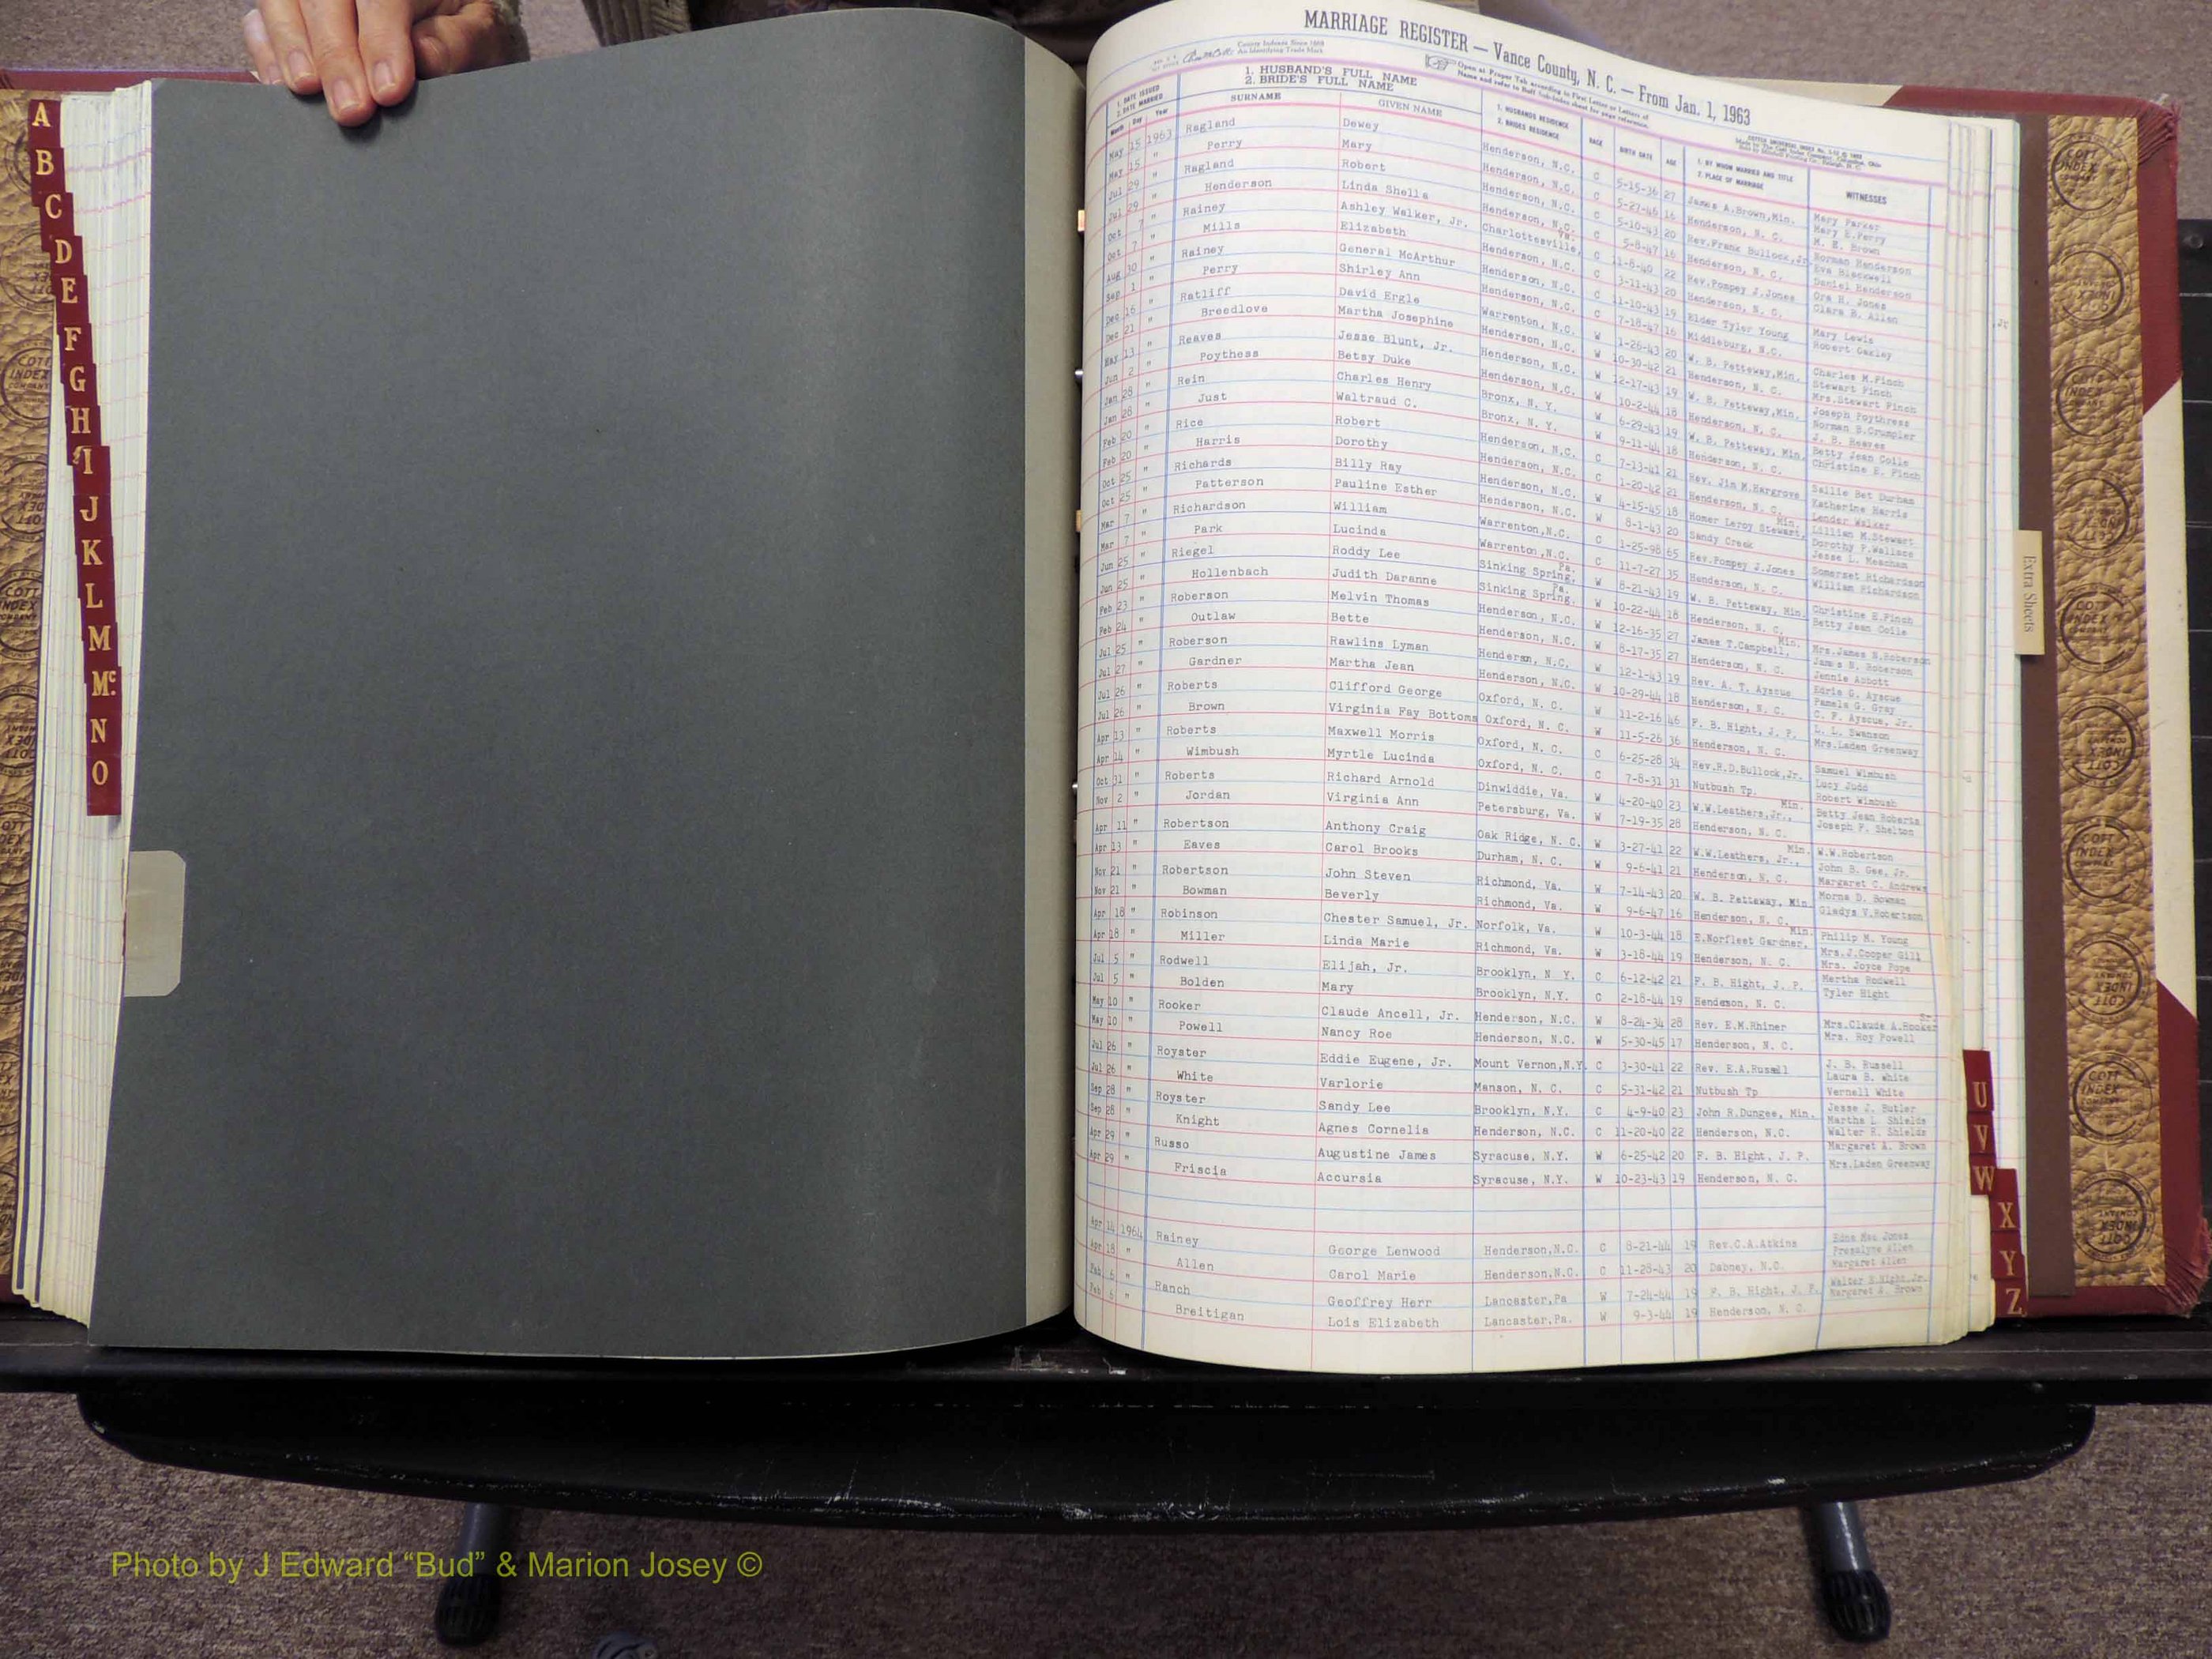 MARRIAGE REGISTER — Vance County, N. C. — From Jan. 1, 1963
County Indexes Since 1888
An Identifying Trade Mark
Open at Proper Tab according to First Letter or Letters of
Name and refer to Buff Sub-Index sheet for page reference.
1. DATE ISSUED
2. DATE MARRIED
Month Day Year
1. HUSBAND'S FULL NAME
2. BRIDE'S FULL NAME
SURNAME GIVEN NAME
1. HUSBANDS RESIDENCE
2. BRIDES RESIDENCE
RACE BIRTH DATE AGE
1. BY WHOM MARRIED AND TITLE
2. PLACE OF MARRIAGE
WITNESSES
May 15 1963 Ragland Dewey Henderson, N.C. C 5-15-36 27 James A.Brown,Min. Mary Parker
May 15 " Perry Mary Henderson, N.C. C 5-27-46 16 Henderson, N. C. Mary E.Perry
Jul 29 " Ragland Robert Henderson, N.C. C 5-10-43 20 Rev.Frank Bullock,Jr. M. E. Brown Norman Henderson
Jul 29 " Henderson Linda Shella Henderson, N.C. C 5-8-47 16 Henderson, N. C. Eva Blackwell Daniel Henderson
Oct 7 " Rainey Ashley Walker, Jr. Charlottesville, Va. C 11-8-40 22 Rev.Pompey J.Jones Ora H. Jones
Oct 7 " Mills Elizabeth Henderson, N.C. C 3-11-43 20 Henderson, N. C. Clara B. Allen
Aug 30 " Rainey General McArthur Henderson, N.C. C 11-10-43 19 Elder Tyler Young Mary Lewis
Sep 1 " Perry Shirley Ann Henderson, N.C. C 7-18-47 16 Middleburg, N.C. Robert Oakley
Dec 16 " Ratliff David Ergle Warrenton, N.C. W 1-26-43 20 W. B. Petteway,Min. Charles M.Finch Stewart Finch
Dec 21 " Breedlove Martha Josephine Henderson, N.C. W 10-30-42 21 Henderson, N. C. Mrs.Stewart Finch
May 13 " Reaves Jesse Blunt, Jr. Henderson, N.C. W 12-17-43 19 W. B. Petteway,Min. Joseph Poythress Norman B.Crumpler
Jun 2 " Poythess Betsy Duke Henderson, N.C. W 10-2-44 18 Henderson, N. C. J. B. Reaves
Jan 28 " Rein Charles Henry Bronx, N. Y. W 6-29-43 19 W. B. Petteway, Min. Betty Jean Coile
Jan 28 " Just Waltraud C. Bronx, N. Y. W 9-11-44 18 Henderson, N. C. Christine E. Finch
Feb 20 " Rice Robert Henderson, N.C. C 7-13-41 21 Rev. Jim M.Hargrove Sallie Bet Durham
Feb 20 " Harris Dorothy Henderson, N.C. C 1-20-42 21 Henderson, N. C. Katherine Harris Lender Walker
Oct 25 " Richards Billy Ray Henderson, N.C. W 4-15-45 18 Homer Leroy Stewart, Min. Lillian M.Stewart Dorothy P.Wallace
Oct 25 " Patterson Pauline Esther Henderson, N.C. W 8-1-43 20 Sandy Creek Jesse L. Meacham
Mar 7 " Richardson William Warrenton,N.C. C 1-25-98 65 Rev.Pompey J.Jones Somerset Richardson
Mar 7 " Park Lucinda Warrenton,N.C. C 11-7-27 35 Henderson, N. C. William Richardson
Jun 25 " Riegel Roddy Lee Sinking Spring, Pa. W 8-21-43 19 W. B. Petteway, Min. Christine E.Finch
Jun 25 " Hollenbach Judith Daranne Sinking Spring, Pa. W 10-22-44 18 Henderson, N. C. Betty Jean Coile
Feb 23 " Roberson Melvin Thomas Henderson, N.C. W 12-16-35 27 James T.Campbell, Min. Mrs.James N.Roberson James N. Roberson
Feb 24 " Outlaw Bette Henderson, N.C. W 8-17-35 27 Henderson, N. C. Jennie Abbott
Jul 25 " Roberson Rawlins Lyman Henderson, N.C. W 12-1-43 19 Rev. A. T. Ayscue Edris G. Ayscue Pamela G. Gray
Jul 27 " Gardner Martha Jean Henderson, N.C. W 10-29-44 18 Henderson, N. C. C. P. Ayscue, Jr.
Jul 26 " Roberts Clifford George Oxford, N. C. W 11-2-16 46 F. B. Hight, J. P. L. L. Swanson
Jul 26 " Brown Virginia Fay Bottoms Oxford, N. C. W 11-5-26 36 Henderson, N. C. Mrs.Laden Greenway
Apr 13 " Roberts Maxwell Morris Oxford, N. C. C 6-25-28 34 Rev.R.D.Bullock,Jr. Samuel Wimbush Lucy Judd
Apr 14 " Wimbush Myrtle Lucinda Oxford, N. C. C 7-8-31 31 Nutbush Tp. Robert Wimbush
Oct 31 " Roberts Richard Arnold Dinwiddie, Va. W 4-20-40 23 W.W.Leathers,Jr., Min. Betty Jean Roberts
Nov 2 " Jordan Virginia Ann Petersburg, Va. W 7-19-35 28 Henderson, N. C. Joseph F. Shelton
Apr 11 " Robertson Anthony Craig Oak Ridge, N. C. W 3-27-41 22 W.W.Leathers, Jr., Min. W.W.Robertson John B. Gee, Jr.
Apr 13 " Eaves Carol Brooks Durham, N. C. W 9-6-41 21 Henderson, N. C. Margaret C. Andrews
Nov 21 " Robertson John Steven Richmond, Va. W 7-14-43 20 W. B. Petteway, Min. Morna D. Bowman
Nov 21 " Bowman Beverly Richmond, Va. W 9-6-47 16 Henderson, N. C. Gladys V.Robertson
Apr 18 " Robinson Chester Samuel, Jr. Norfolk, Va. W 10-3-44 18 E.Norfleet Gardner, Min. Philip M. Young Mrs.J.Cooper Gill
Apr 18 " Miller Linda Marie Richmond, Va. W 3-18-44 19 Henderson, N. C. Mrs. Joyce Pope
Jul 5 " Rodwell Elijah, Jr. Brooklyn, N Y. C 6-12-42 21 F. B. Hight, J. P. Mertha Rodwell
Jul 5 " Bolden Mary Brooklyn, N.Y. C 2-18-44 19 Henderson, N. C. Tyler Hight
May 10 " Rooker Claude Ancell, Jr. Henderson, N.C. W 8-24-34 28 Rev. E.M.Rhiner Mrs.Claude A.Rooker Sr.
May 10 " Powell Nancy Roe Henderson, N.C. W 5-30-45 17 Henderson, N. C. Mrs. Roy Powell
Jul 26 " Royster Eddie Eugene, Jr. Mount Vernon,N.Y. C 3-30-41 22 Rev. E.A.Russell J. B. Russell Laura B. White
Jul 26 " White Varlorie Manson, N. C. C 5-31-42 21 Nutbush Tp Vernell White
Sep 28 " Royster Sandy Lee Brooklyn, N.Y. C 4-9-40 23 John R.Dungee, Min. Jesse J. Butler Martha L. Shields
Sep 28 " Knight Agnes Cornelia Henderson, N.C. C 11-20-40 22 Henderson, N.C. Walter R. Shields
Apr 29 " Russo Augustine James Syracuse, N.Y. W 6-25-42 20 F. B. Hight, J. P. Margaret A. Brown
Apr 29 " Friscia Accursia Syracuse, N.Y. W 10-23-43 19 Henderson, N. C. Mrs.Laden Greenway
Apr 14 1964 Rainey George Lenwood Henderson,N.C. C 8-21-44 19 Rev.C.A.Atkins Edna Mae Jones Allen
Apr 18 " Allen Carol Marie Henderson,N.C. C 11-28-43 20 Dabney, N.C. Margaret Allen
Feb 6 " Ranch Geoffrey Herr Lancaster,Pa W 7-24-44 19 F. B. Hight, J. P. Walter E.Hight,Jr.
Feb 6 " Breitigan Lois Elizabeth Lancaster,Pa. W 9-3-44 19 Henderson, N. C. Margaret A. Brown
A
B
C
D
E
F
G
H
I
J
K
L
M
Mc.
N
O
Extra Sheets
U
V
W
X
Y
Z
COTT
INDEX
COMPANY
Photo by J Edward “Bud” & Marion Josey ©